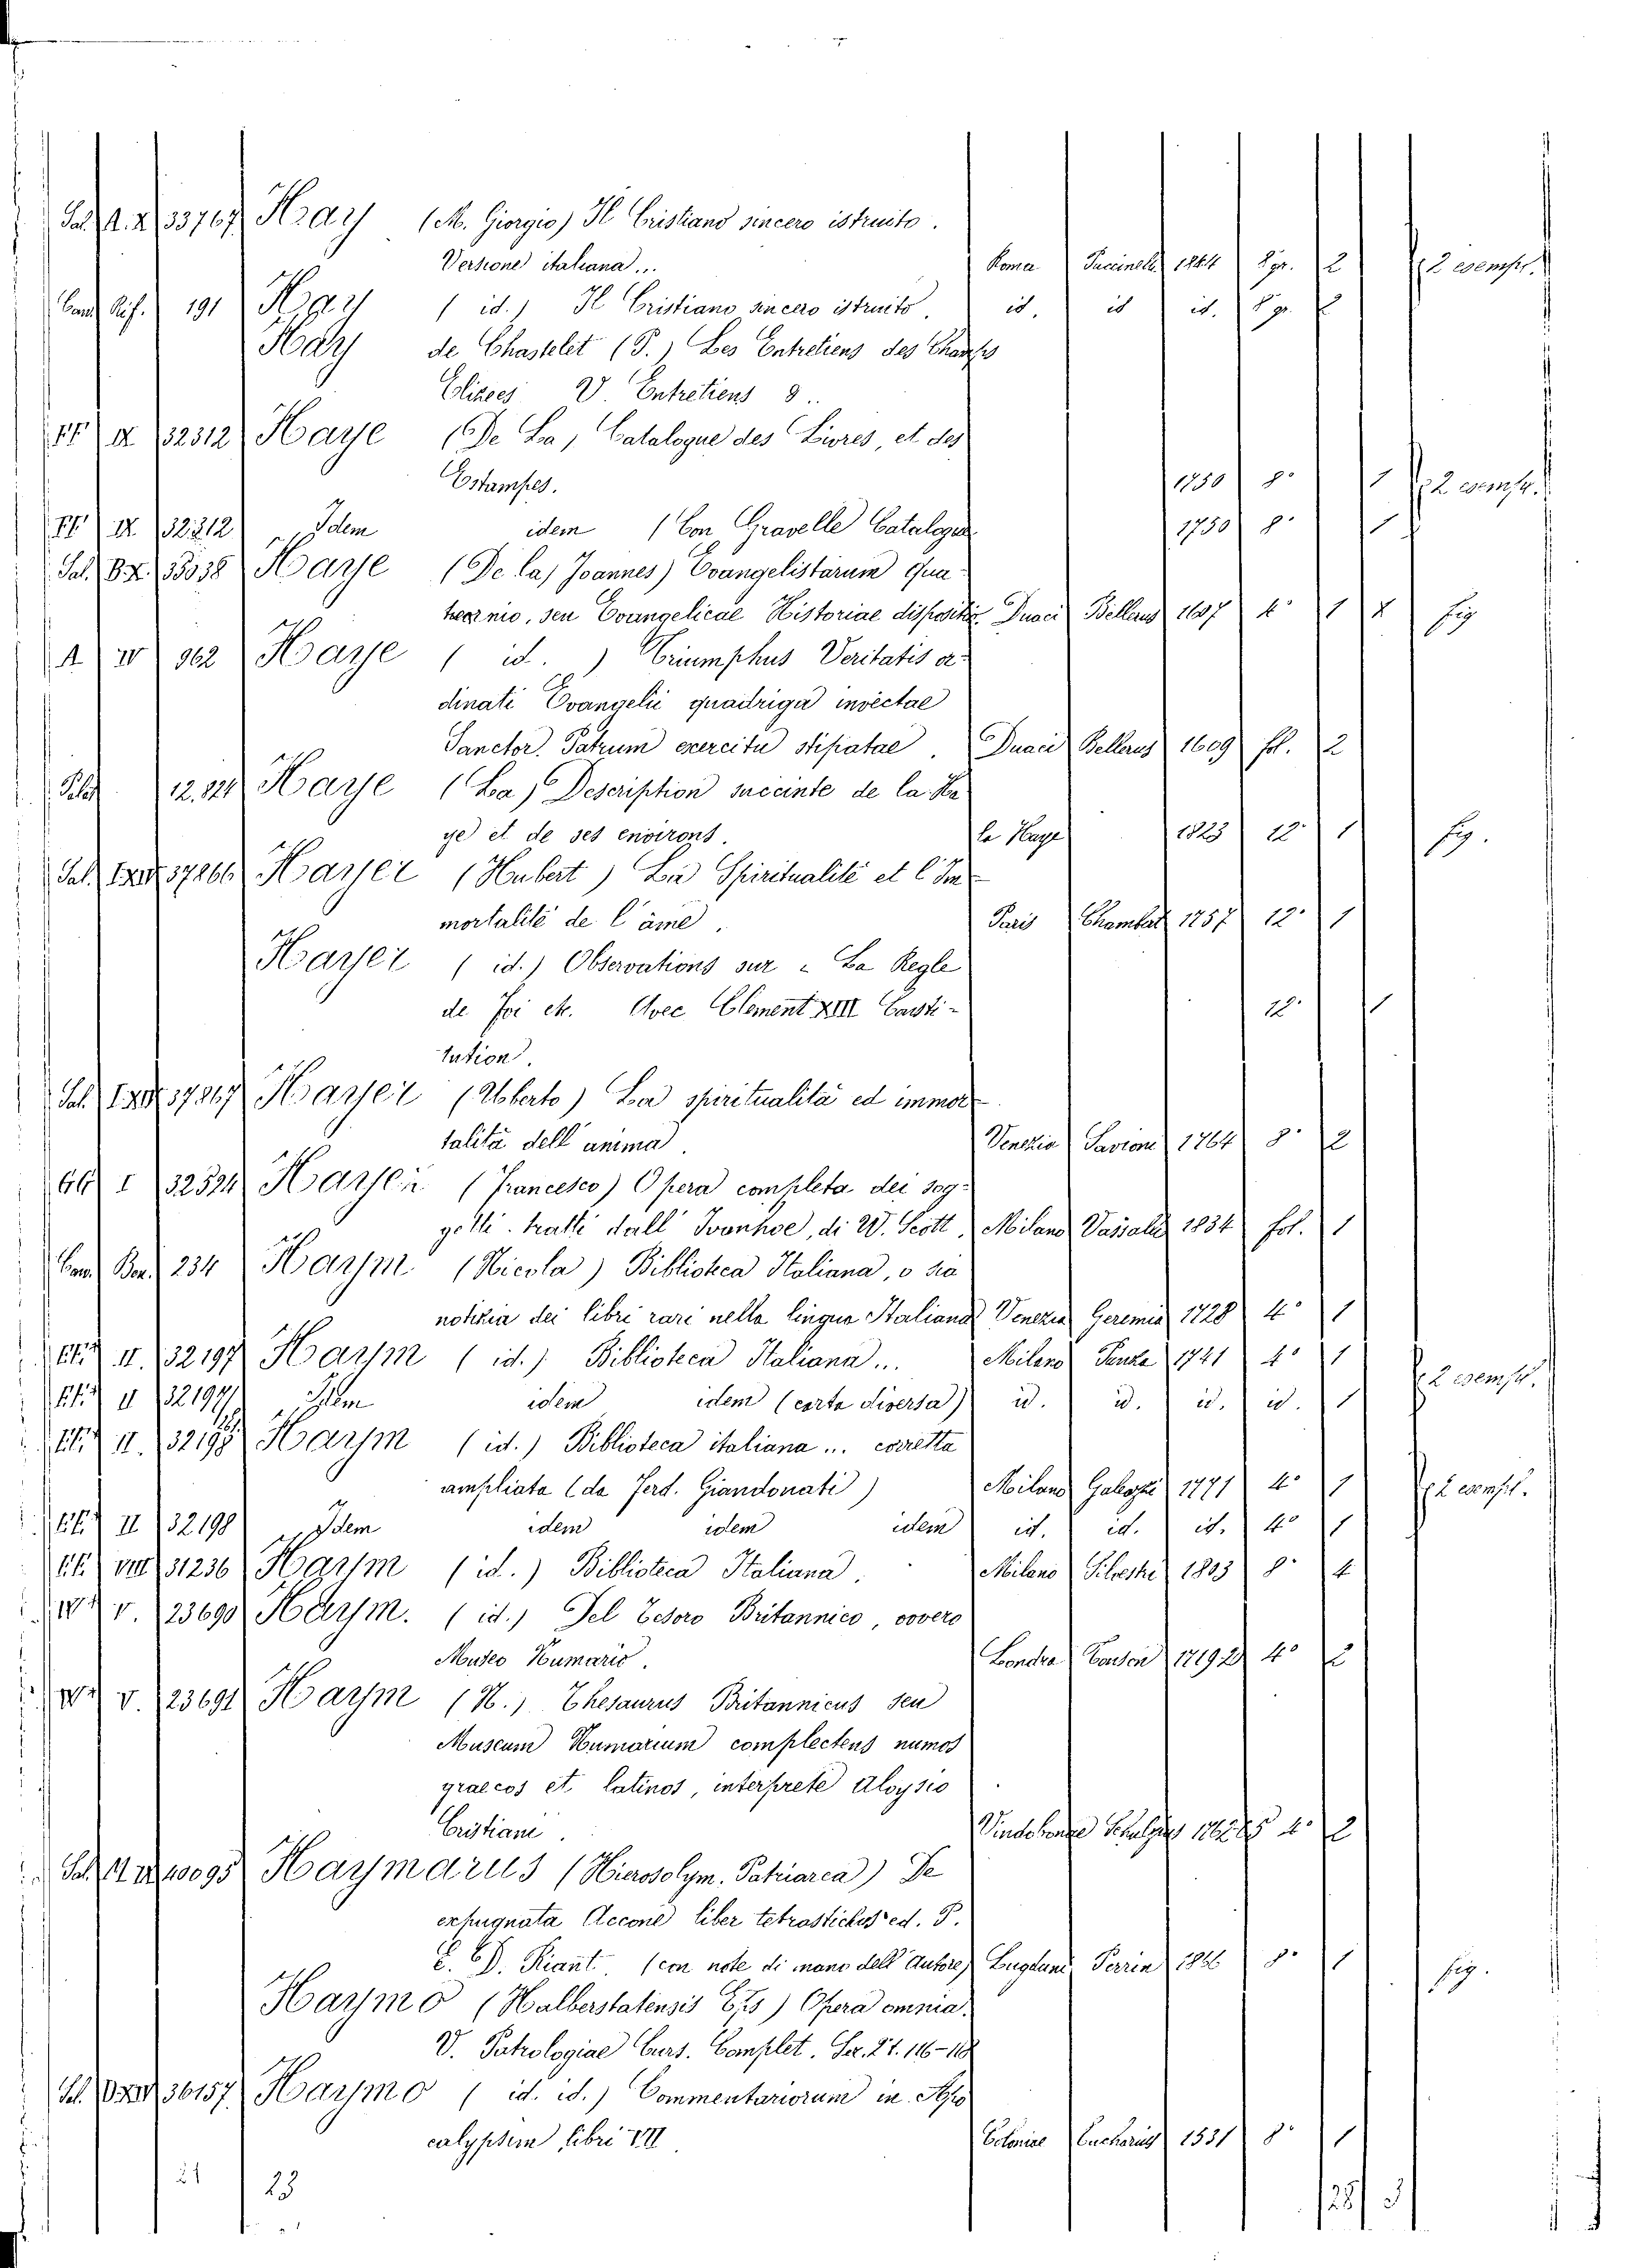 Sal. A. X 33767 Hay (M. Giorgio) Il Cristiano sincero istruito.
Versione italiana... Roma Puccinelli 1844 8 gr. 2 2 esempr.
Cam. Rif. 191 Hay ( id. ) Il Cristiano sincero istruito. id. id id. 8 gr. 2
Hay de Chastelet (P.) Les Entretiens des Champs
Elizees V. Entretiens 8..
FF IX 32312 Haye (De La) Catalogue des Livres, et des
Estampes. 1750 8° 1 2 esempr.
FF IX 32312 Idem idem (Con Gravelle Catalogue 1750 8° 1
Sal. B X. 35038 Haye (De la) Joannes) Evangelistarum qua-
ternio, seu Evangelicae Historiae dispositio Duaci Bellerus 1607 4° 1 X fig
A IV 962 Haye ( id. ) Triumphus Veritatis or-
dinati Evangelii quadriga invectae
Sanctor. Patrum exercitu stipatae. Duaci Bellerus 1609 fol. 2
12.824 Haye (La) Description succinte de la Ha
ye et de ses environs. la Haye 1823 12° 1 fig.
Sal. 37866 Hayer (Hubert) La Spiritualité et l'Im-
mortalité de l'âme. Paris Chambert 1757 12° 1
Hayer ( id.) Observations sur " La Regle
de Foi etc. Avec Clement XIII Consti-
tution. 12° 1
Sal. 37867 Hayer (Uberto) La spiritualità ed immor-
talità dell'anima. Venezia Savioni 1764 8° 2
I 32524 Hayez (Francesco) Opera completa dei sog-
getti tratti dall' Ivanhoe, di W. Scott. Milano Vassalli 1834 fol. 1
Cam. Ben. 234 Haym (Nicola) Biblioteca Italiana, o sia
notizia dei libri rari nella lingua Italiana Venezia Geremia 1728 4° 1
II. 32197 Haym ( id.) Biblioteca Italiana... Milano 1741 4° 1 2 esempr.
II 32197 Idem idem idem (carta diversa) id. id. id. id. 1
II. 32198 Haym (id.) Biblioteca italiana ... corretta
ampliata (da Ferd. Giandonati) Milano Galeazzi 1771 4° 1 2 esempr.
II 32198 Idem idem idem idem id. id. id. 4° 1
VIII 31236 Haym (id.) Biblioteca Italiana. Milano Silvestri 1803 8° 4
V. 23690 Haym. ( id.) Del Tesoro Britannico, ovvero
Museo Numario. Londra Tonson 1719 20 4° 2
V. 23691 Haym (N.) Thesaurus Britannicus seu
Museum Numarium complectens numos
graecos et latinos, interprete Aloysio
Cristiani. Vindobonae 1762 65 4° 2
40095 Haymarus (Hierosolym. Patriarca) De
expugnata Accone liber tetrastichus ed. P.
E. D. Riant. (con note di mano dell'Autore) Lugduni Perrin 1866 8° 1 fig.
Haymo (Halberstatensis Eps) Opera omnia.
V. Patrologiae Curs. Complet. Ser. 2 t. 116-118
Sal. 36157 Haymo ( id. id.) Commentariorum in Apo
calypsim libri VII Coloniae Eucharius 1531 8° 1
21 23 28 3